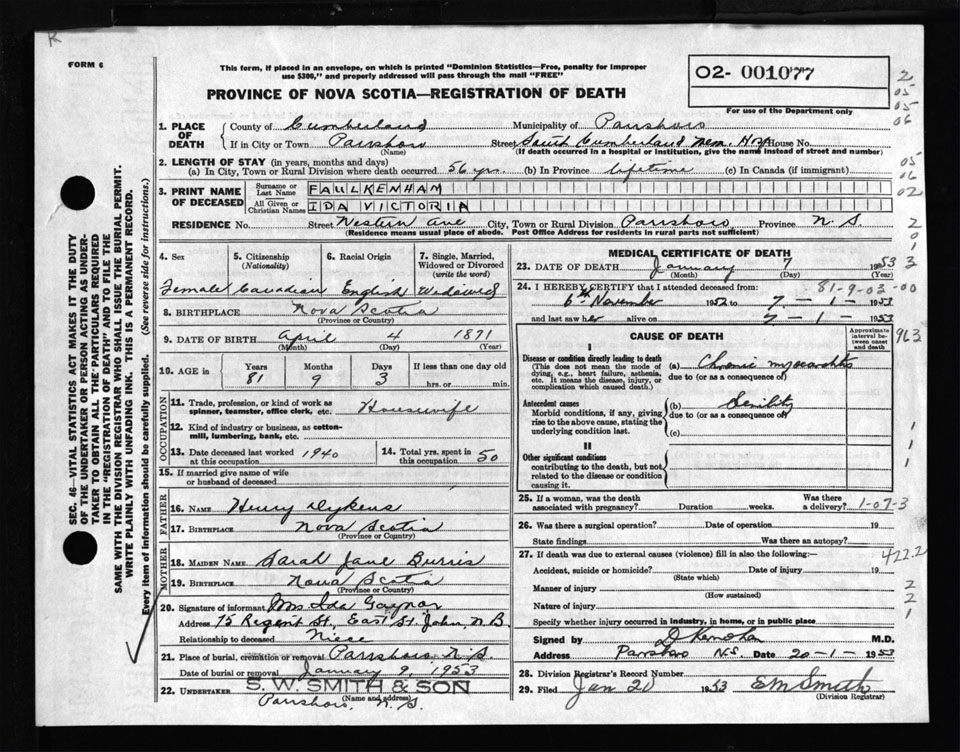 K
FORM 6
This form, if placed in an envelope, on which is printed "Dominion Statistics—Free, penalty for improper
use $300," and properly addressed will pass through the mail "FREE"
02- 001077
For use of the Department only
PROVINCE OF NOVA SCOTIA—REGISTRATION OF DEATH
1. PLACE OF DEATH County of Cumberland Municipality of Parrsboro
If in City or Town Parrsboro Street South Cumberland Mem. House No.
(Name) (If death occurred in a hospital or institution, give the name instead of street and number)
2. LENGTH OF STAY (in years, months and days)
(a) In City, Town or Rural Division where death occurred 56 yrs. (b) In Province lifetime (c) In Canada (if immigrant)
3. PRINT NAME OF DECEASED
Surname or Last Name FAULKENHAM
All Given or Christian Names IDA VICTORIA
RESIDENCE No. Street Western Ave City, Town or Rural Division Parrsboro Province N.S.
(Residence means usual place of abode. Post Office Address for residents in rural parts not sufficient)
4. Sex 5. Citizenship (Nationality) 6. Racial Origin 7. Single, Married, Widowed or Divorced (write the word)
Female Canadian English Widowed
8. BIRTHPLACE Nova Scotia
(Province or Country)
9. DATE OF BIRTH April 4 1871
(Month) (Day) (Year)
10. AGE in Years Months Days If less than one day old
81 9 3 hrs. or min.
OCCUPATION
11. Trade, profession, or kind of work as spinner, teamster, office clerk, etc. Housewife
12. Kind of industry or business, as cotton-mill, lumbering, bank, etc.
13. Date deceased last worked at this occupation 1940 14. Total yrs. spent in this occupation 50
15. If married give name of wife or husband of deceased
FATHER
16. NAME Henry Dykens
17. BIRTHPLACE Nova Scotia
(Province or Country)
MOTHER
18. MAIDEN NAME Sarah Jane Burris
19. BIRTHPLACE Nova Scotia
(Province or Country)
20. Signature of informant Mrs Ida Gaynor
Address 75 Regent St., East St. John, N.B.
Relationship to deceased Niece
21. Place of burial, cremation or removal Parrsboro N.S.
Date of burial or removal January 9, 1953
22. UNDERTAKER S. W. SMITH & SON
(Name and address)
Parrsboro, N.S.
MEDICAL CERTIFICATE OF DEATH
23. DATE OF DEATH January 7 1953
(Month) (Day) (Year)
24. I HEREBY CERTIFY that I attended deceased from: 81-9-03-00
6th November 1952 to 7-1-1953
and last saw her alive on 7-1-1953
CAUSE OF DEATH
Approximate interval between onset and death
I
Disease or condition directly leading to death (a) Chronic myocarditis
(This does not mean the mode of dying, e.g., heart failure, asthenia, etc. It means the disease, injury, or complication which caused death.)
due to (or as a consequence of)
Antecedent causes (b) Senility
Morbid conditions, if any, giving rise to the above cause, stating the underlying condition last.
due to (or as a consequence of)
(c)
II
Other significant conditions
contributing to the death, but not related to the disease or condition causing it.
25. If a woman, was the death associated with pregnancy? Duration weeks. Was there a delivery? 1-07-3
26. Was there a surgical operation? Date of operation 19
State findings Was there an autopsy?
27. If death was due to external causes (violence) fill in also the following:—
Accident, suicide or homicide? Date of injury 19
(State which)
Manner of injury
(How sustained)
Nature of injury
Specify whether injury occurred in industry, in home, or in public place
Signed by M.D.
Address Parrsboro N.S. Date 20-1-1953
28. Division Registrar's Record Number
29. Filed Jan 20 1953 E M Smith
(Division Registrar)
SEC. 46—VITAL STATISTICS ACT MAKES IT THE DUTY
OF THE UNDERTAKER OR PERSON ACTING AS UNDER-
TAKER TO OBTAIN ALL THE PARTICULARS REQUIRED
IN THE "REGISTRATION OF DEATH" AND TO FILE THE
SAME WITH THE DIVISION REGISTRAR WHO SHALL ISSUE THE BURIAL PERMIT.
WRITE PLAINLY WITH UNFADING INK. THIS IS A PERMANENT RECORD.
Every item of information should be carefully supplied. (See reverse side for instructions.)
2
05
05
06
05
06
02
2
0
1
3
963
1
1
1
422.2
2
2
1